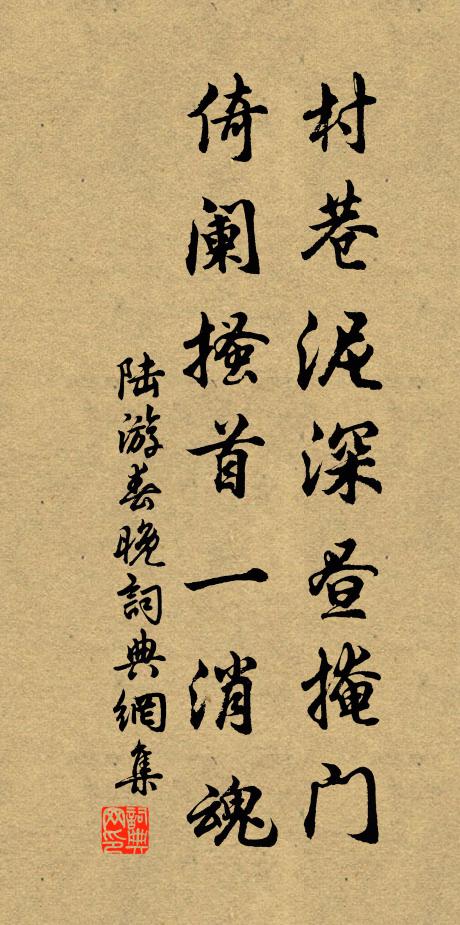 村巷泥深昼掩门
倚阑搔首一消魂
陆游春晚詞典網集
詞典网印